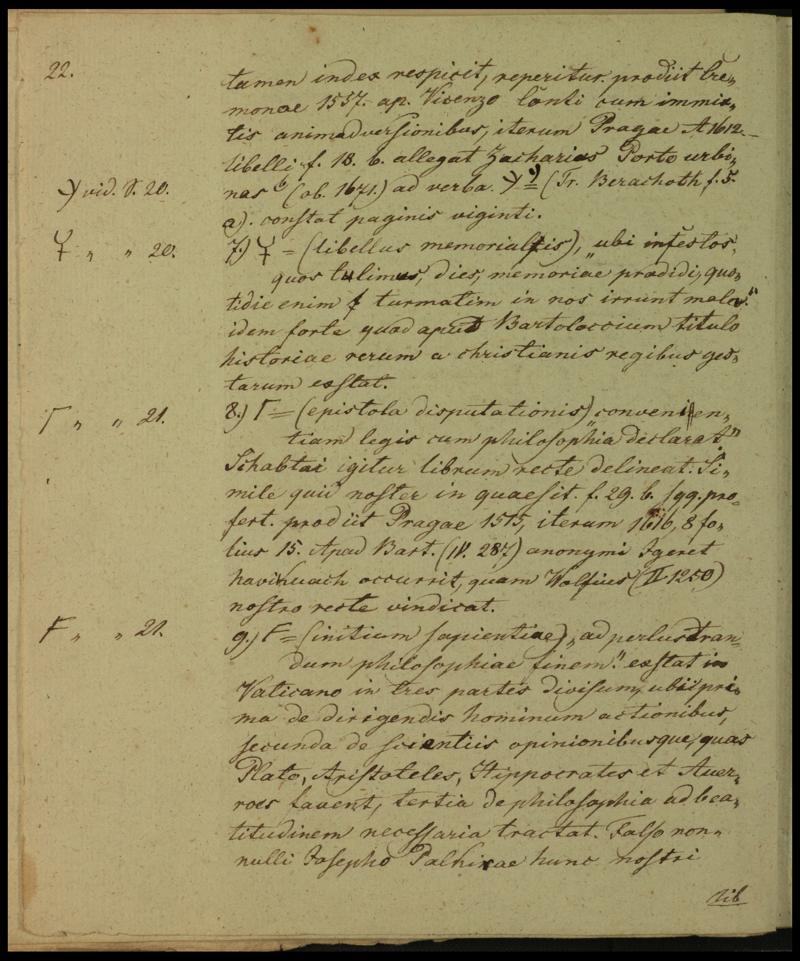 22.
tamen index respicit, reperitur. prodiit Cre,,
monae 1557. ap. Vicenzo Conti cum immix,,
tis animadversionibus, iterum Pragae A 1612.
libelli f. 18. b. allegat Zacharias Porto urbi,,
vid. S. 20.
nas (ob. 1671.) ad verba. = (Tr. Berachoth f. 5.
a). constat paginis viginti.
„ „ 20.
7.) = (libellus memorialis), „ubi infestos,
quos tulimus, dies, memoriae prodidi, quo,,
tidie enim turmatim in nos irrunt mala."
idem forte quod apud Bartoloccium titulo
historiae rerum a christianis regibus ges,,
tarum exstat.
Γ „ „ 21.
8.) Γ = (epistola disputationis) „convenien,,
tiam legis cum philosophia declarat"
Schabtai igitur librum recte delineat. Si,,
mile quid noster in quaesit. f. 29. b. sqq. pro,,
fert. prodiit Pragae 1575, iterum 1616, 8 fo,,
lius 15. Apad Bart. (IV. 287) anonymi Igeret
havikuach occurrit, quam Wolfius (II 1259)
nostro recte vindicat.
F „ „ 21.
9.) F = (initium sapientiae), „ad perlustran
dum philosophiae finem." exstat in
Vaticano in tres partes divisum, ubi pri,,
ma de dirigendis hominum actionibus,
secunda de scientiis opinionibusque, quas
Plato, Aristoteles, Hippocrates et Aver,,
roes favent, tertia de philosophia ad bea,,
titudinem necessaria tractat. Falso non,,
nulli Josepho Palkirae hunc nostri
lib